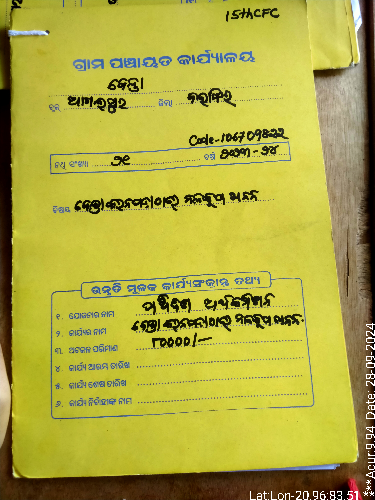 15thCFC
ଗ୍ରାମ ପଞ୍ଚାୟତ କାର୍ଯ୍ୟାଳୟ
କେନ୍ତା
ବ୍ଲକ ଆଗଲପୁର ଜିଲ୍ଲା ବଲାଙ୍ଗିର
Code-106709822
ନଥି ସଂଖ୍ୟା ବର୍ଷ ୨୦୨୩-୨୪
ବିଷୟ ନଳକୂପ ଖନନ
ଉନ୍ନତି ମୂଳକ କାର୍ଯ୍ୟସଂକ୍ରାନ୍ତ ତଥ୍ୟ
୧. ଯୋଜନାର ନାମ ପଞ୍ଚଦଶ ଅର୍ଥକମିଶନ
୨. କାର୍ଯ୍ୟର ନାମ ନଳକୂପ ଖନନ.
୩. ଅଟକଳ ପରିମାଣ ୮୦୦୦୦/-
୪. କାର୍ଯ୍ୟ ଆରମ୍ଭ ତାରିଖ
୫. କାର୍ଯ୍ୟ ଶେଷ ତାରିଖ
୬. କାର୍ଯ୍ୟ ନିର୍ବାହୀଙ୍କ ନାମ
Lat:Lon-20.96:83.51
***Acur:9.94, Date: 28-09-2024